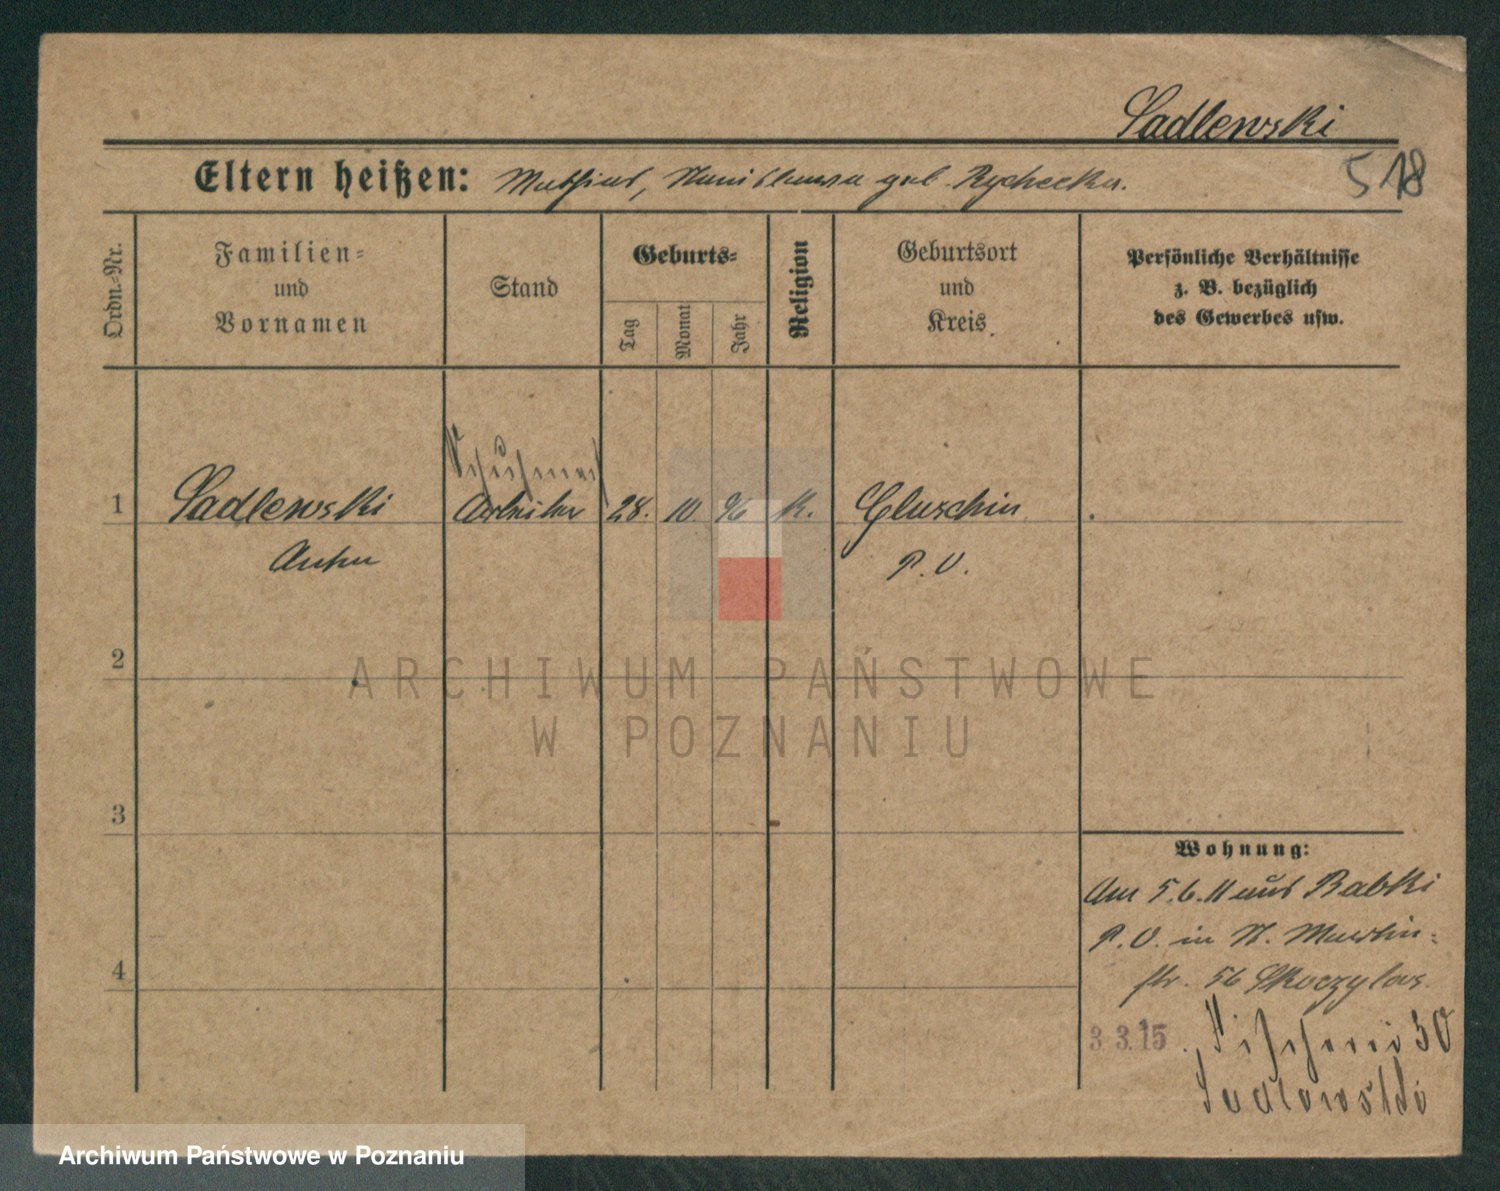 Sadlewski
518
Eltern heißen: Mathias, Stanislawa geb. Rychecka.
Ordn.-Nr.
Familien-
und
Vornamen
Stand
Geburts-
Tag
Monat
Jahr
Religion
Geburtsort
und
Kreis
Persönliche Verhältnisse
z. B. bezüglich
des Gewerbes usw.
1 Sadlewski Arbeiter 28. 10. 96 K. Gluschin
P. O.
2
3
4
Wohnung:
Am 5.6.11 aus Babki
P. O. in St. Martin-
str. 56 Skoczylas.
3 3.15. Fischerei 30
Sadlowski
ARCHIWUM PAŃSTWOWE
W POZNANIU
Archiwum Państwowe w Poznaniu